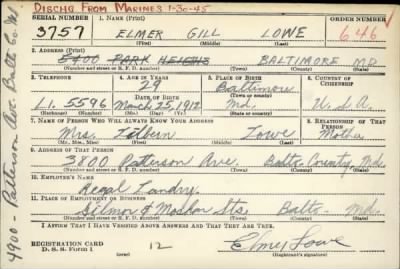 Dischg From Marines 1-30-45
SERIAL NUMBER 1. NAME (Print) ORDER NUMBER
3757 ELMER GILL LOWE 646
(First) (Middle) (Last)
2. ADDRESS (Print)
5400 PARK HEIGHTS BALTIMORE MD
(Number and street or R. F. D. number) (Town) (County) (State)
3. TELEPHONE 4. AGE IN YEARS 5. PLACE OF BIRTH 6. COUNTRY OF CITIZENSHIP
28 Baltimore
DATE OF BIRTH (Town or county)
Li. 5596 March 25, 1912 Md. U.S.A.
(Exchange) (Number) (Mo.) (Day) (Yr.) (State or country)
7. NAME OF PERSON WHO WILL ALWAYS KNOW YOUR ADDRESS 8. RELATIONSHIP OF THAT PERSON
Mrs. Lowe Mother
(Mr., Mrs., Miss) (First) (Middle) (Last)
9. ADDRESS OF THAT PERSON
3800 Patterson Ave. Balto County, Md.
(Number and street or R. F. D. number) (Town) (County) (State)
10. EMPLOYER'S NAME
Regal Landry
11. PLACE OF EMPLOYMENT OR BUSINESS
Gilmor & Mosher Sts. Balto. Md.
(Number and street or R. F. D. number) (Town) (County) (State)
I AFFIRM THAT I HAVE VERIFIED ABOVE ANSWERS AND THAT THEY ARE TRUE.
REGISTRATION CARD
D. S. S. Form 1 12 Elmer Lowe
(Registrant's signature)
4900 - Patterson Ave Balto Co Md